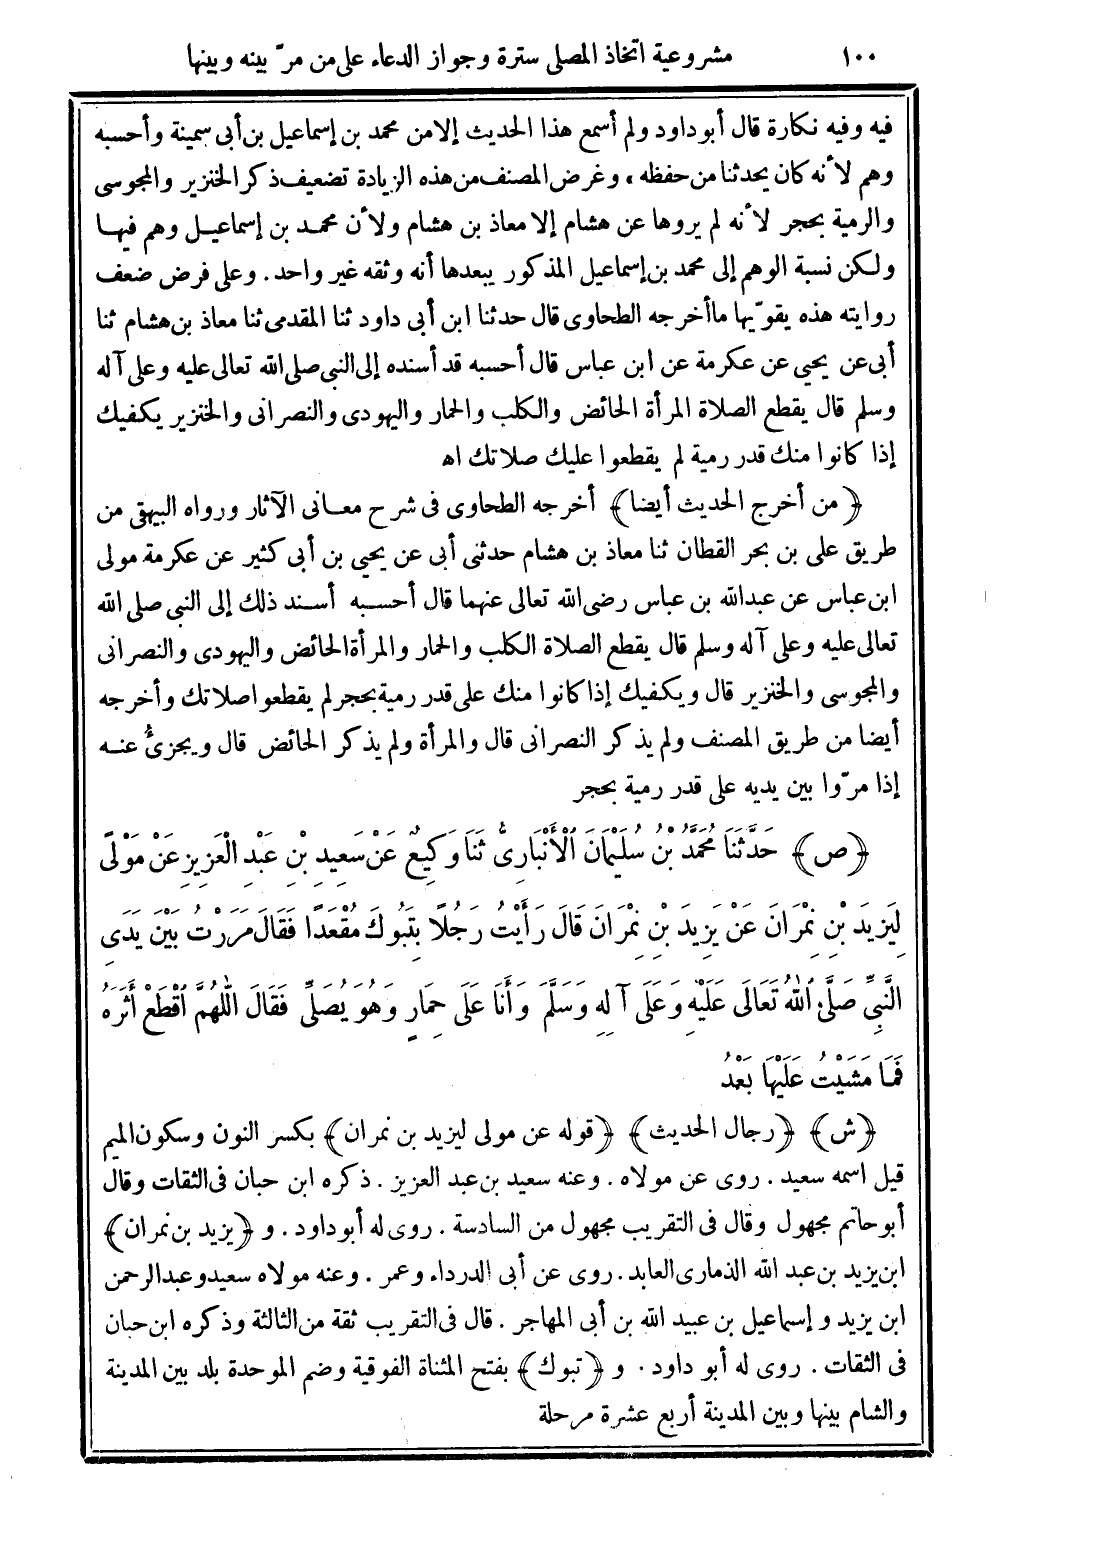 ١٠٠ مشروعية اتخاذ المصلى سترة وجواز الدعاء على من مرّ بينه وبينها
فيه وفيه نكارة قال أبو داود ولم أسمع هذا الحديث إلا من محمد بن إسماعيل بن أبى سمينة وأحسبه
وهم لأنه كان يحدثنا من حفظه، وغرض المصنف من هذه الزيادة تضعيف ذكر الخنزير والمجوسى
والرمية بحجر لأنه لم يروها عن هشام إلا معاذ بن هشام ولأن محمد بن إسماعيل وهم فيها
ولكن نسبة الوهم إلى محمد بن إسماعيل المذكور يبعدها أنه وثقه غير واحد. وعلى فرض ضعف
روايته هذه يقوّيها ما أخرجه الطحاوى قال حدثنا ابن أبى داود ثنا المقدمى ثنا معاذ بن هشام ثنا
أبى عن يحيى عن عكرمة عن ابن عباس قال أحسبه قد أسنده إلى النبى صلى الله تعالى عليه وعلى آله
وسلم قال يقطع الصلاة المرأة الحائض والكلب والحمار واليهودى والنصرانى والخنزير يكفيك
إذا كانوا منك قدر رمية لم يقطعوا عليك صلاتك اه
﴿من أخرج الحديث أيضا﴾ أخرجه الطحاوى فى شرح معانى الآثار ورواه البيهقى من
طريق على بن بحر القطان ثنا معاذ بن هشام حدثنى أبى عن يحيى بن أبى كثير عن عكرمة مولى
ابن عباس عن عبد الله بن عباس رضى الله تعالى عنهما قال أحسبه أسند ذلك إلى النبى صلى الله
تعالى عليه وعلى آله وسلم قال يقطع الصلاة الكلب والحمار والمرأة الحائض واليهودى والنصرانى
والمجوسى والخنزير قال ويكفيك إذا كانوا منك على قدر رمية بحجر لم يقطعوا صلاتك وأخرجه
أيضا من طريق المصنف ولم يذكر النصرانى قال والمرأة ولم يذكر الحائض قال ويجزئُ عنه
إذا مرّوا بين يديه على قدر رمية بحجر
﴿ص﴾ حَدَّثَنَا مُحَمَّدُ بْنُ سُلَيْمَانَ الْأَنْبَارِىُّ ثَنَا وَكِيعٌ عَنْ سَعِيدِ بْنِ عَبْدِ الْعَزِيزِ عَنْ مَوْلًى
لِيَزِيدَ بْنِ نِمْرَانَ عَنْ يَزِيدَ بْنِ نِمْرَانَ قَالَ رَأَيْتُ رَجُلًا بِتَبُوكَ مُقْعَدًا فَقَالَ مَرَرْتُ بَيْنَ يَدَىِ
النَّبِىِّ صَلَّى اللهُ تَعَالَى عَلَيْهِ وَعَلَى آلِهِ وَسَلَّمَ وَأَنَا عَلَى حِمَارٍ وَهُوَ يُصَلِّى فَقَالَ اللّٰهُمَّ اقْطَعْ أَثَرَهُ
فَمَا مَشَيْتُ عَلَيْهَا بَعْدُ
﴿ش﴾ ﴿رجال الحديث﴾ ﴿قوله عن مولى ليزيد بن نمران﴾ بكسر النون وسكون الميم
قيل اسمه سعيد. روى عن مولاه. وعنه سعيد بن عبد العزيز. ذكره ابن حبان فى الثقات وقال
أبو حاتم مجهول وقال فى التقريب مجهول من السادسة. روى له أبو داود. و﴿يزيد بن نمران﴾
ابن يزيد بن عبد الله الذمارى العابد. روى عن أبى الدرداء وعمر. وعنه مولاه سعيد وعبد الرحمن
ابن يزيد وإسماعيل بن عبيد الله بن أبى المهاجر. قال فى التقريب ثقة من الثالثة وذكره ابن حبان
فى الثقات. روى له أبو داود. و﴿تبوك﴾ بفتح المثناة الفوقية وضم الموحدة بلد بين المدينة
والشام بينها وبين المدينة أربع عشرة مرحلة